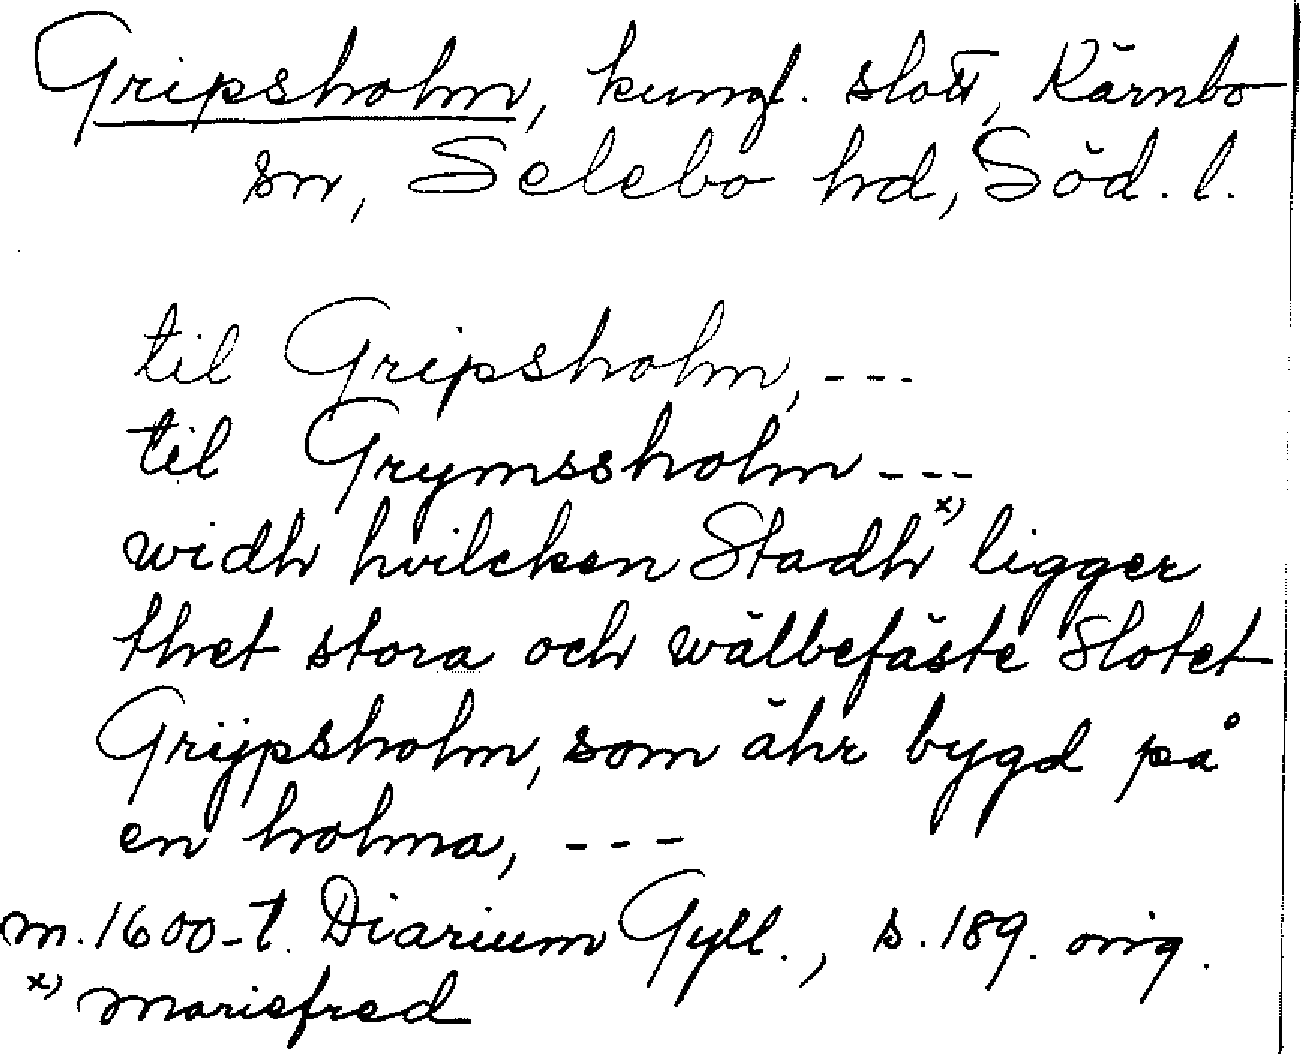 Gripsholm, kungl. slott, Kärnbo
sn, Selebo hd, Söd. l.
til Gripsholm, ---
til Grymssholm ---
widh hvilcken Stadh x) ligger
thet stora och wälbefäste Slotet
Grijpsholm, som ähr bygd på
en holma, ---
m. 1600-t. Diarium Gyll., s. 189. orig.
x) Mariefred